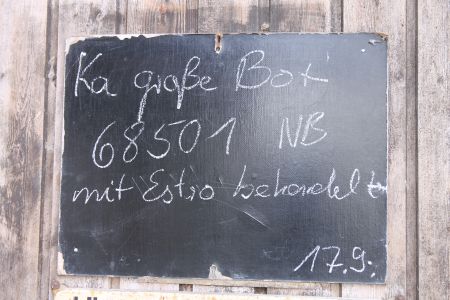 Ka große Box
68501 NB
mit Estro behandelt
17.9.